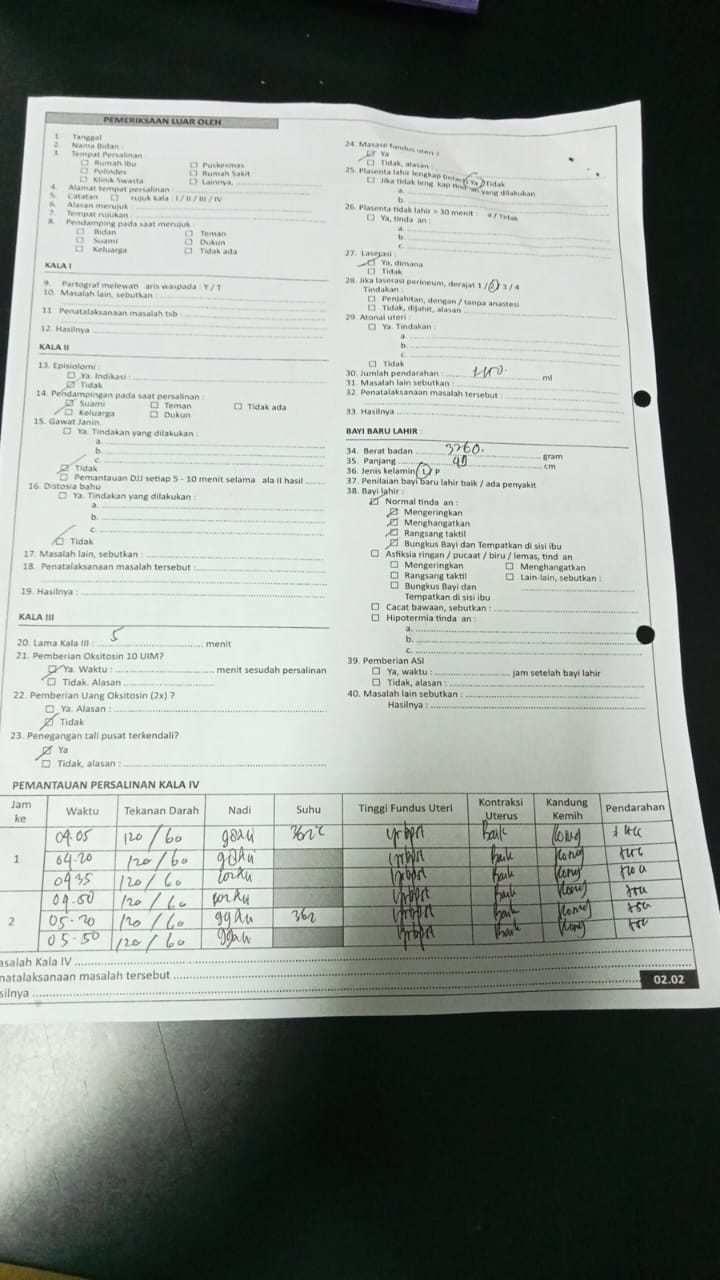 PEMERIKSAAN LUAR OLEH
1. Tanggal
2. Nama Bidan :
3. Tempat Persalinan :
☐ Rumah Ibu ☐ Puskesmas
☐ Polindes ☐ Rumah Sakit
☐ Klinik Swasta ☐ Lainnya,
4. Alamat tempat persalinan
5. Catatan ☐ rujuk kala : I / II / III / IV
6. Alasan merujuk :
7. Tempat rujukan :
8. Pendamping pada saat merujuk :
☐ Bidan ☐ Teman
☐ Suami ☐ Dukun
☐ Keluarga ☐ Tidak ada
KALA I
9. Partograf melewati aris waspada : Y / T
10. Masalah lain, sebutkan :
11. Penatalaksanaan masalah tsb :
12. Hasilnya
KALA II
13. Episiotomi :
☐ Ya Indikasi :
☑ Tidak
14. Pendampingan pada saat persalinan :
☑ Suami ☐ Teman ☐ Tidak ada
☐ Keluarga ☐ Dukun
15. Gawat Janin.
☐ Ya. Tindakan yang dilakukan :
a.
b.
c.
☑ Tidak
☐ Pemantauan DJJ setiap 5 - 10 menit selama ala II hasil
16. Distosia bahu
☐ Ya. Tindakan yang dilakukan :
a.
b.
c.
☑ Tidak
17. Masalah lain, sebutkan :
18. Penatalaksanaan masalah tersebut :
19. Hasilnya :
KALA III
20. Lama Kala III : 5 menit
21. Pemberian Oksitosin 10 UIM?
☑ Ya. Waktu : menit sesudah persalinan
☐ Tidak. Alasan
22. Pemberian Uang Oksitosin (2x) ?
☐ Ya. Alasan :
☑ Tidak
23. Penegangan tali pusat terkendali?
☑ Ya
☐ Tidak, alasan :
24. Masase fundus uteri ?
☑ Ya
☐ Tidak, alasan
25. Plasenta lahir lengkap (intact) Ya / Tidak
☐ Jika tidak leng kap tind an yang dilakukan
a.
b.
26. Plasenta tidak lahir > 30 menit : / Tidak
☐ Ya, tinda an :
a.
b.
c.
27. Laserasi :
☑ Ya, dimana
☐ Tidak
28. Jika laserasi perineum, derajat 1 / 2 / 3 / 4
Tindakan :
☐ Penjahitan, dengan / tanpa anastesi
☐ Tidak, dijahit, alasan
29. Atonai uteri :
☐ Ya. Tindakan :
a.
b.
c.
☐ Tidak
30. Jumlah pendarahan : ml
31. Masalah lain sebutkan :
32. Penatalaksanaan masalah tersebut :
33. Hasilnya
BAYI BARU LAHIR :
34. Berat badan 3260. gram
35. Panjang cm
36. Jenis kelamin L / P
37. Penilaian bayi baru lahir baik / ada penyakit
38. Bayi lahir :
☑ Normal tinda an :
☑ Mengeringkan
☑ Menghangatkan
☑ Rangsang taktil
☑ Bungkus Bayi dan Tempatkan di sisi ibu
☐ Asfiksia ringan / pucaat / biru / lemas, tind an
☐ Mengeringkan ☐ Menghangatkan
☐ Rangsang taktil ☐ Lain-lain, sebutkan :
☐ Bungkus Bayi dan
Tempatkan di sisi ibu
☐ Cacat bawaan, sebutkan :
☐ Hipotermia tinda an :
a.
b.
c.
39. Pemberian ASI
☐ Ya, waktu : jam setelah bayi lahir
☐ Tidak, alasan :
40. Masalah lain sebutkan :
Hasilnya :
PEMANTAUAN PERSALINAN KALA IV
Jam ke Waktu Tekanan Darah Nadi Suhu Tinggi Fundus Uteri Kontraksi Uterus Kandung Kemih Pendarahan
1 04.05 120 / 60 Baik Kong
04.20 120 / 60 Baik Kong
04 35 120 / 60 Baik Kong
04.50 120 / 60 Baik Kong
2 05.20 120 / 60 362 Baik Kong
05.50 120 / 60 Baik Kong
asalah Kala IV
natalaksanaan masalah tersebut
silnya
02.02